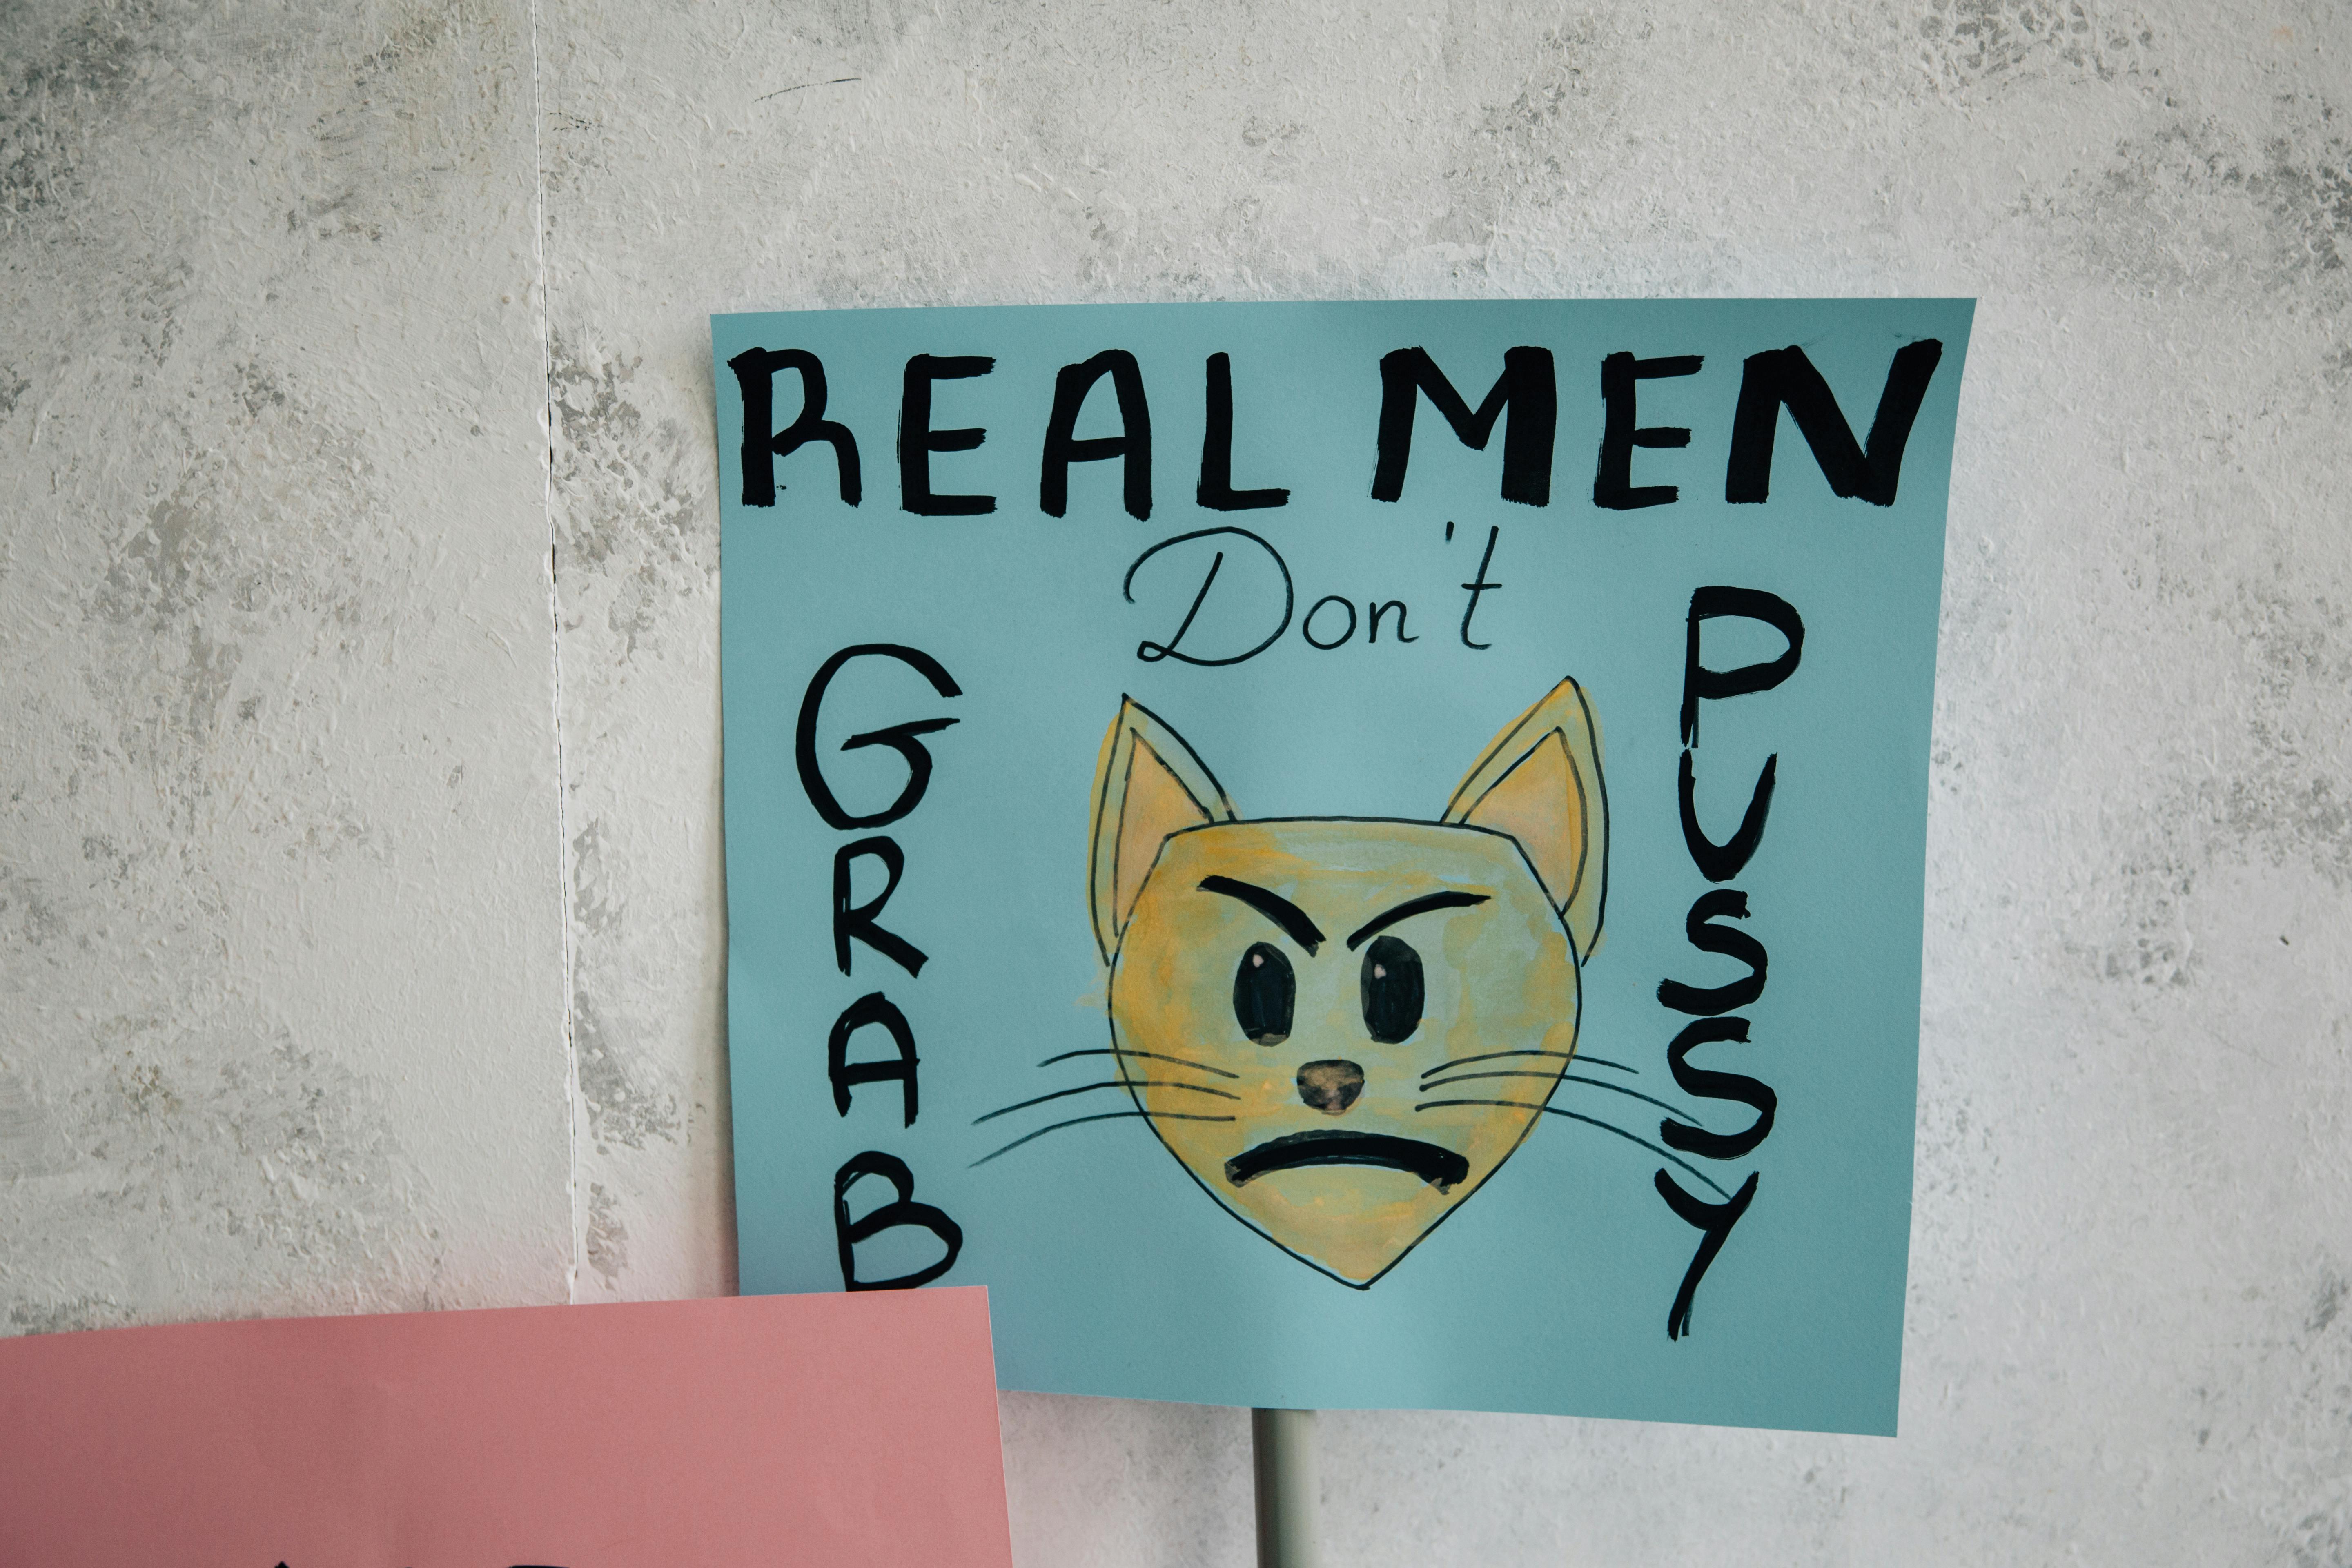 REAL MEN
Don't
GRAB
PUSSY